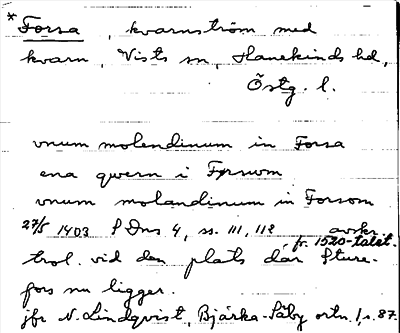 *Forsa, kvarnström med
kvarn, Vists sn, Hanekinds hd,
Östg. l.
vnum molendinum in Forsa
ena qwern i Forswm
vnum molandinum in Forsom
27/5 1403 P Dns 4, ss. 111, 112 avskr.
fr. 1520-talet.
trol. vid den plats där Sture-
fors nu ligger.
jfr N. Lindqvist, Bjärka-Säby ortn. I, s. 87.